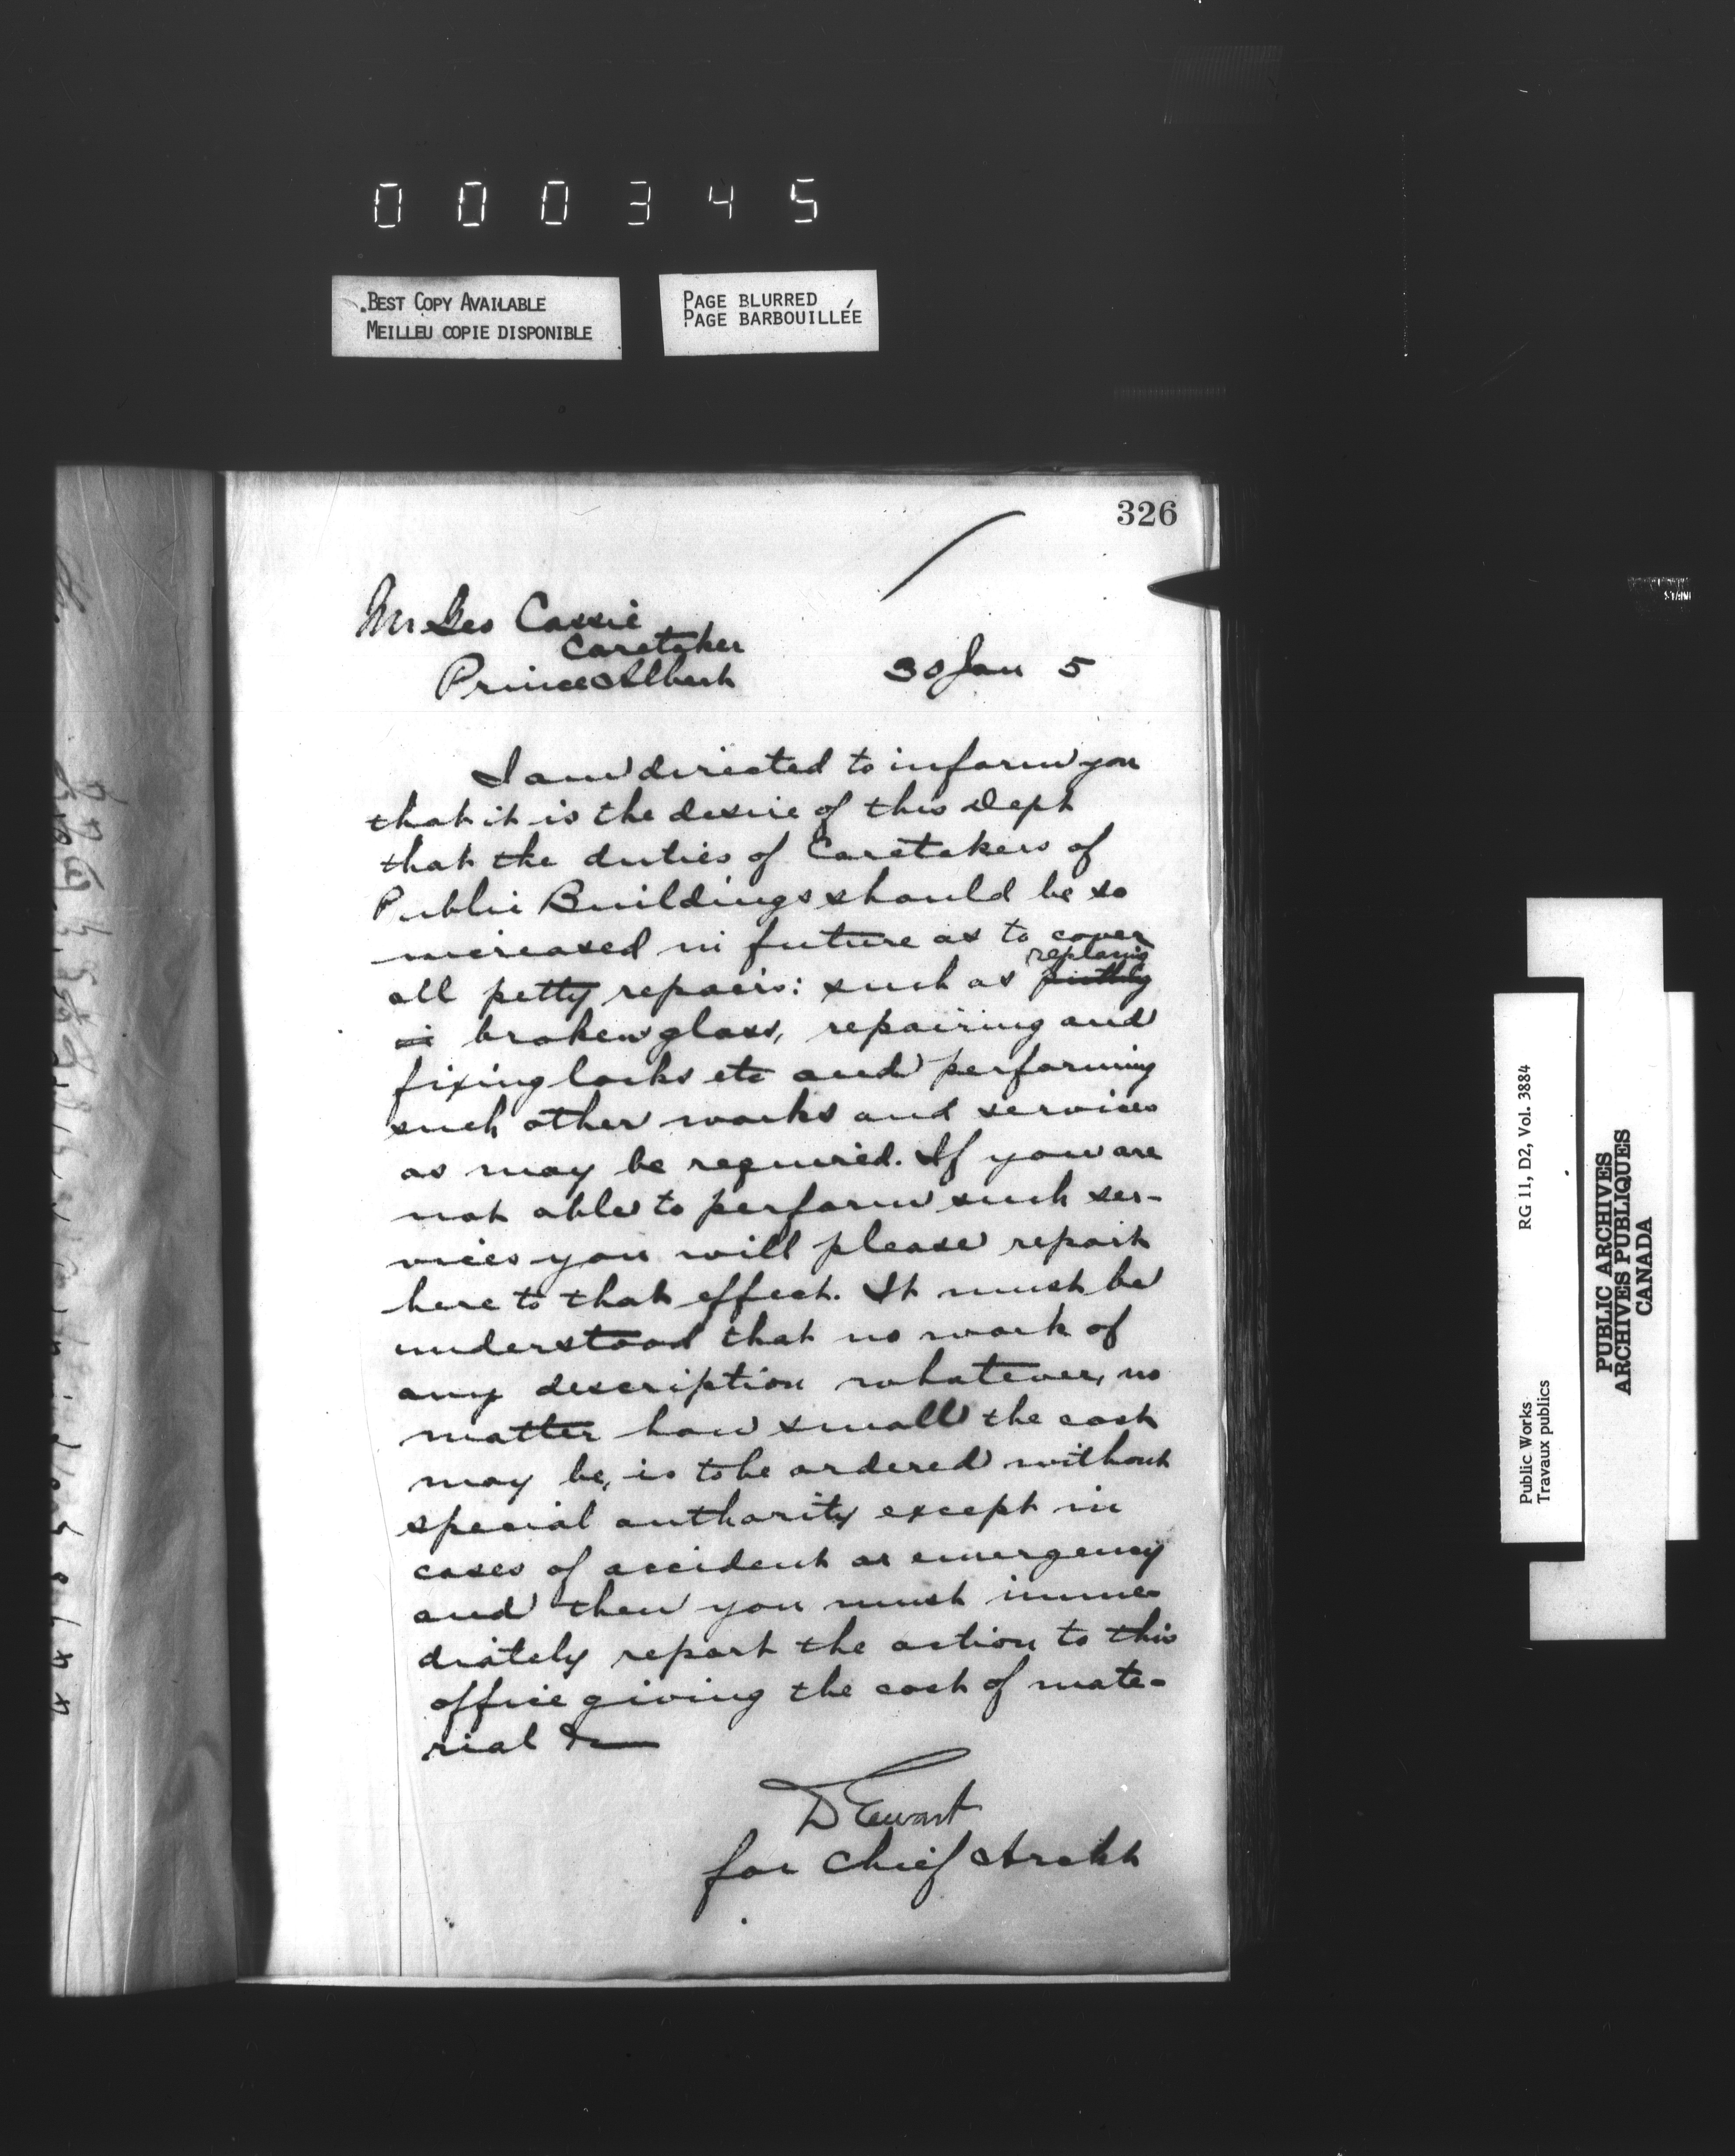 000345
BEST COPY AVAILABLE
MEILLEU COPIE DISPONIBLE
PAGE BLURRED
PAGE BARBOUILLÉE
326
Mr Geo Cassie
Caretaker
Prince Albert
30 Jan 5
I am directed to inform you
that it is the desire of this Dept
that the duties of Caretakers of
Public Buildings should be so
increased in future as to cover
all petty repairs: such as replacing
broken glass, repairing and
fixing locks etc and performing
such other works and services
as may be required. If you are
not able to perform such ser-
vices you will please report
here to that effect. It must be
understood that no work of
any description whatever, no
matter how small the cost
may be, is to be ordered without
special authority except in
cases of accident or emergency
and then you must imme-
diately report the action to this
office giving the cost of mate-
rial &c
D Ewart
for Chief Archt
Public Works
Travaux publics
RG 11, D2, Vol. 3884
PUBLIC ARCHIVES
ARCHIVES PUBLIQUES
CANADA